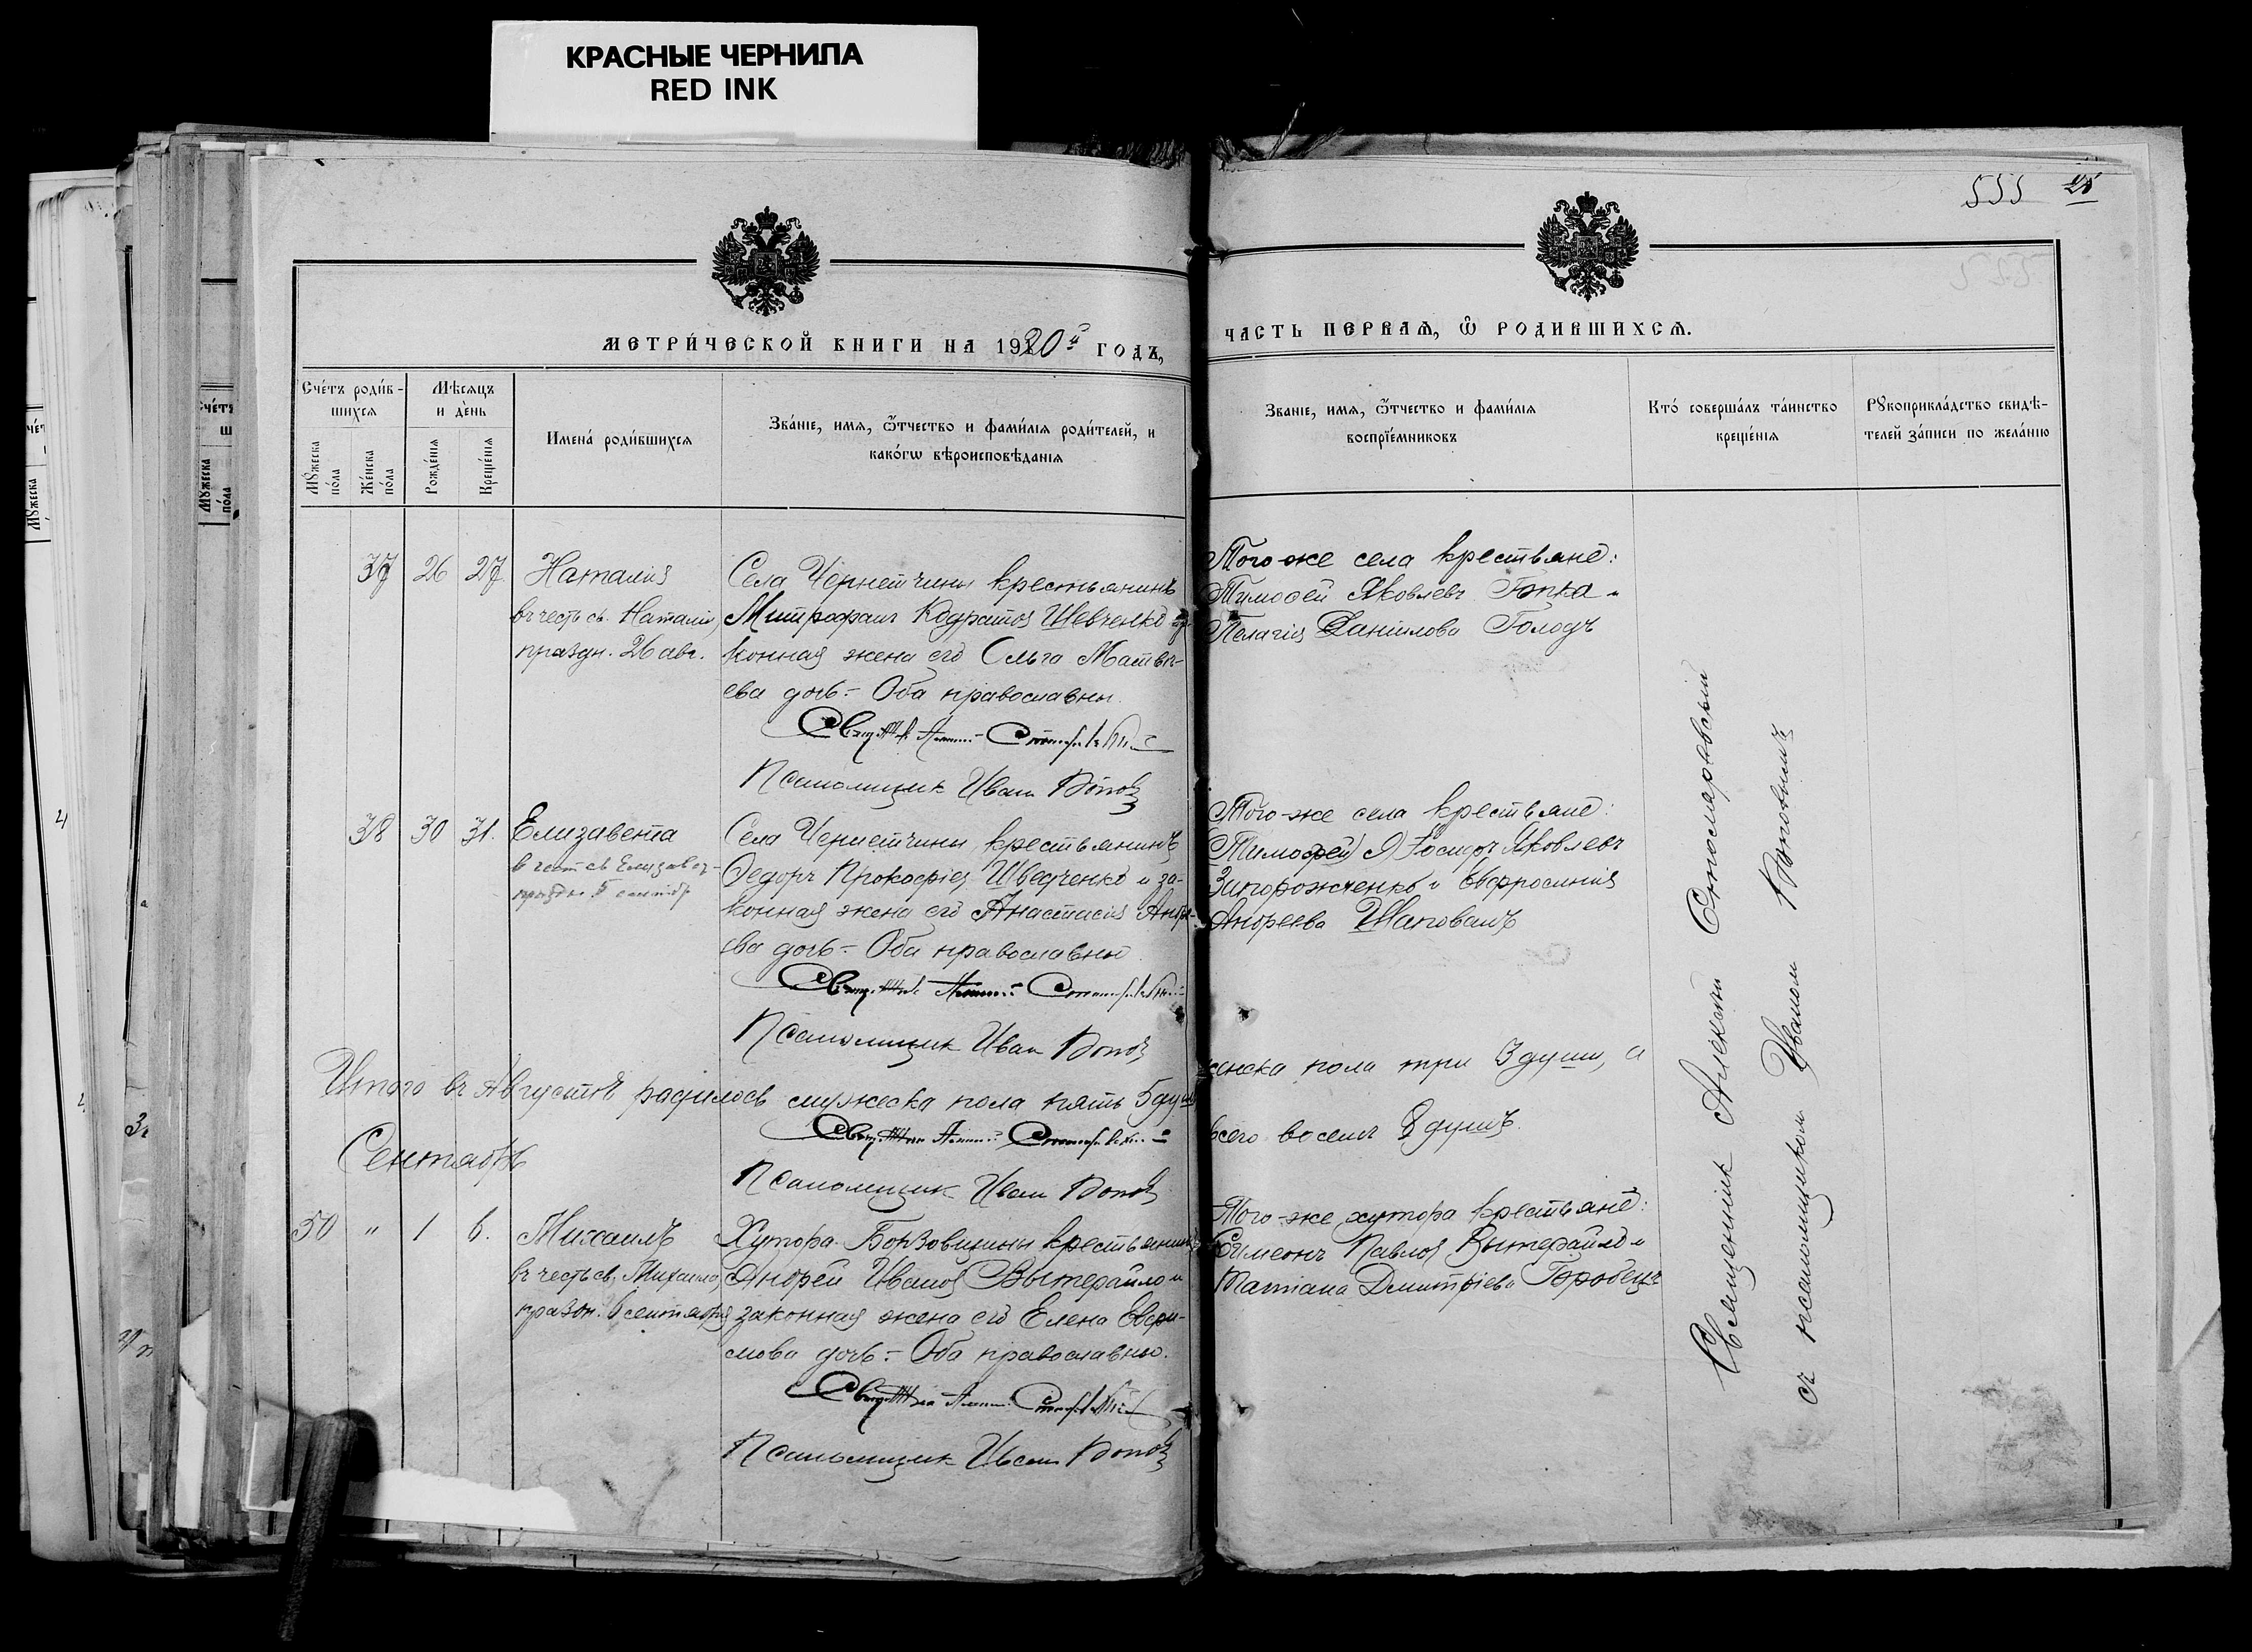 КРАСНЫЕ ЧЕРНИЛА
RED INK
555 25
МЕТРИ́ЧЕСКОЙ КНИГИ НА 1920й ГОДЪ,
ЧАСТЬ ПЕРВАѦ, Ѽ РОДИВШИХСѦ.
Сче́тъ роди́в-
шихсѧ
Мꙋ́жеска
по́ла
Же́нска
по́ла
Мѣ́сѧцъ
и де́нь
Рожде́нїѧ
Креще́нїѧ
Имена̀ роди́вшихсѧ
Зва́нїе, имѧ, ѿчество и фами́лїѧ роди́телей, и
како́гѡ вѣроисповѣ́данїѧ
Званїе, имѧ, ѿчество и фами́лїѧ
воспрїе́мниковъ
Кто̀ соверша́лъ та́инство
креще́нїѧ
Рꙋкоприкла́дство свидѣ́-
телей за́писи по жела́нїю
37 26 27 Наталія
въ честь св. Наталіи,
праздн. 26 авг.
Села Чернетчины крестьянинъ
Митрофанъ Кодратов Шевченко и за-
конная жена его Ольга Матвѣ-
ева дочь - Оба православны.
Псаломщик Иван Попов
Того-же села крестьяне:
Тимофей Яковлевъ и
Пелагія Данилова Голодъ
38 30 31. Елизавета
в честь св Елизавет-
праздн. 5 сентябр
Села Чернетчины крестьянинъ
Федоръ Прокофіев и за-
конная жена его Анастасія Андре-
ева дочь - Оба православны
Псаломщик Иван Попов
Того-же села крестьяне:
Яковлевъ
Запорожченко и Евфросинія
Андреева Шаповалъ
Итого въ Августѣ родилось мужеска пола пять 5 душ
женска пола три 3 души, а
всего восемь 8 душъ.
Псаломщик Иван Попов
Сентябрь
50 " 1 6. Михаилъ
въ честь св. Михаила,
праздн. 6 сентября
Хутора Борзовщины крестьянинъ
Андрей Иванов Вытерайло и
законная жена его Елена Евфи-
мова дочь - Оба православны.
Псаломщик Иван Попов
Того-же хутора крестьяне:
Симеонъ Павлов Вытерайло и
Татіана Дмитріева Горобецъ
Священник Алексій Столяревскій
съ псаломщиком Иваном Поповымъ